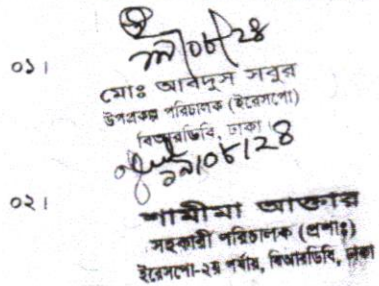 ০১।
মোঃ আবদুস সবুর
উপপ্রকল্প পরিচালক (ইরেসপো)
বিআরডিবি, ঢাকা
০২।
শামীমা আক্তার
সহকারী পরিচালক (প্রশাঃ)
ইরেসপো-২য় পর্যায়, বিআরডিবি, ঢাকা